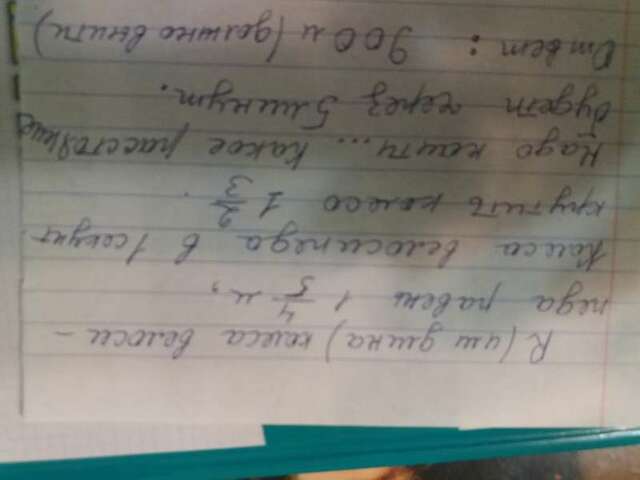 R (или длина) колеса велоси-
педа равень 1 4/5 м,
Колеса велосипеда в 1 секунт
крутить колесо 1 2/3.
Надо найти... Какое расстояние
будет через 5 минут.
Ответ: 900 м (должно выйти)